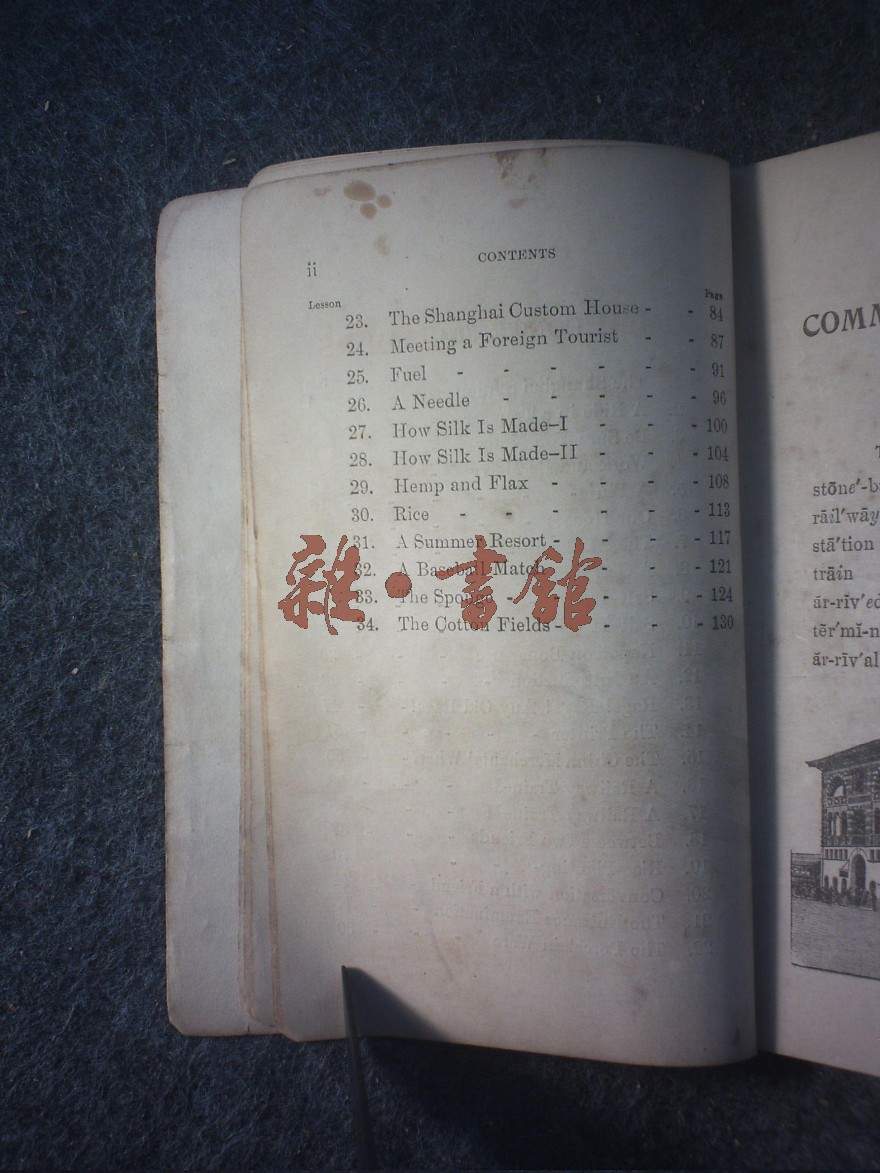 ii
CONTENTS
Lesson Page
23. The Shanghai Custom House - - 84
24. Meeting a Foreign Tourist - - 87
25. Fuel - - - - - - 91
26. A Needle - - - - - 96
27. How Silk Is Made—I - - - 100
28. How Silk Is Made—II - - - 104
29. Hemp and Flax - - - - 108
30. Rice - - - - - - 113
31. A Summer Resort - - - - 117
32. A Baseball Match - - - - 121
33. The Sponge - - - - - 124
34. The Cotton Fields - - - - 130
雜·書館
COMM
stōne′-b
rāil′wāy
stā′tion
trāin
ăr-rīv′ed
tẽr′mĭ-n
ăr-rīv′al